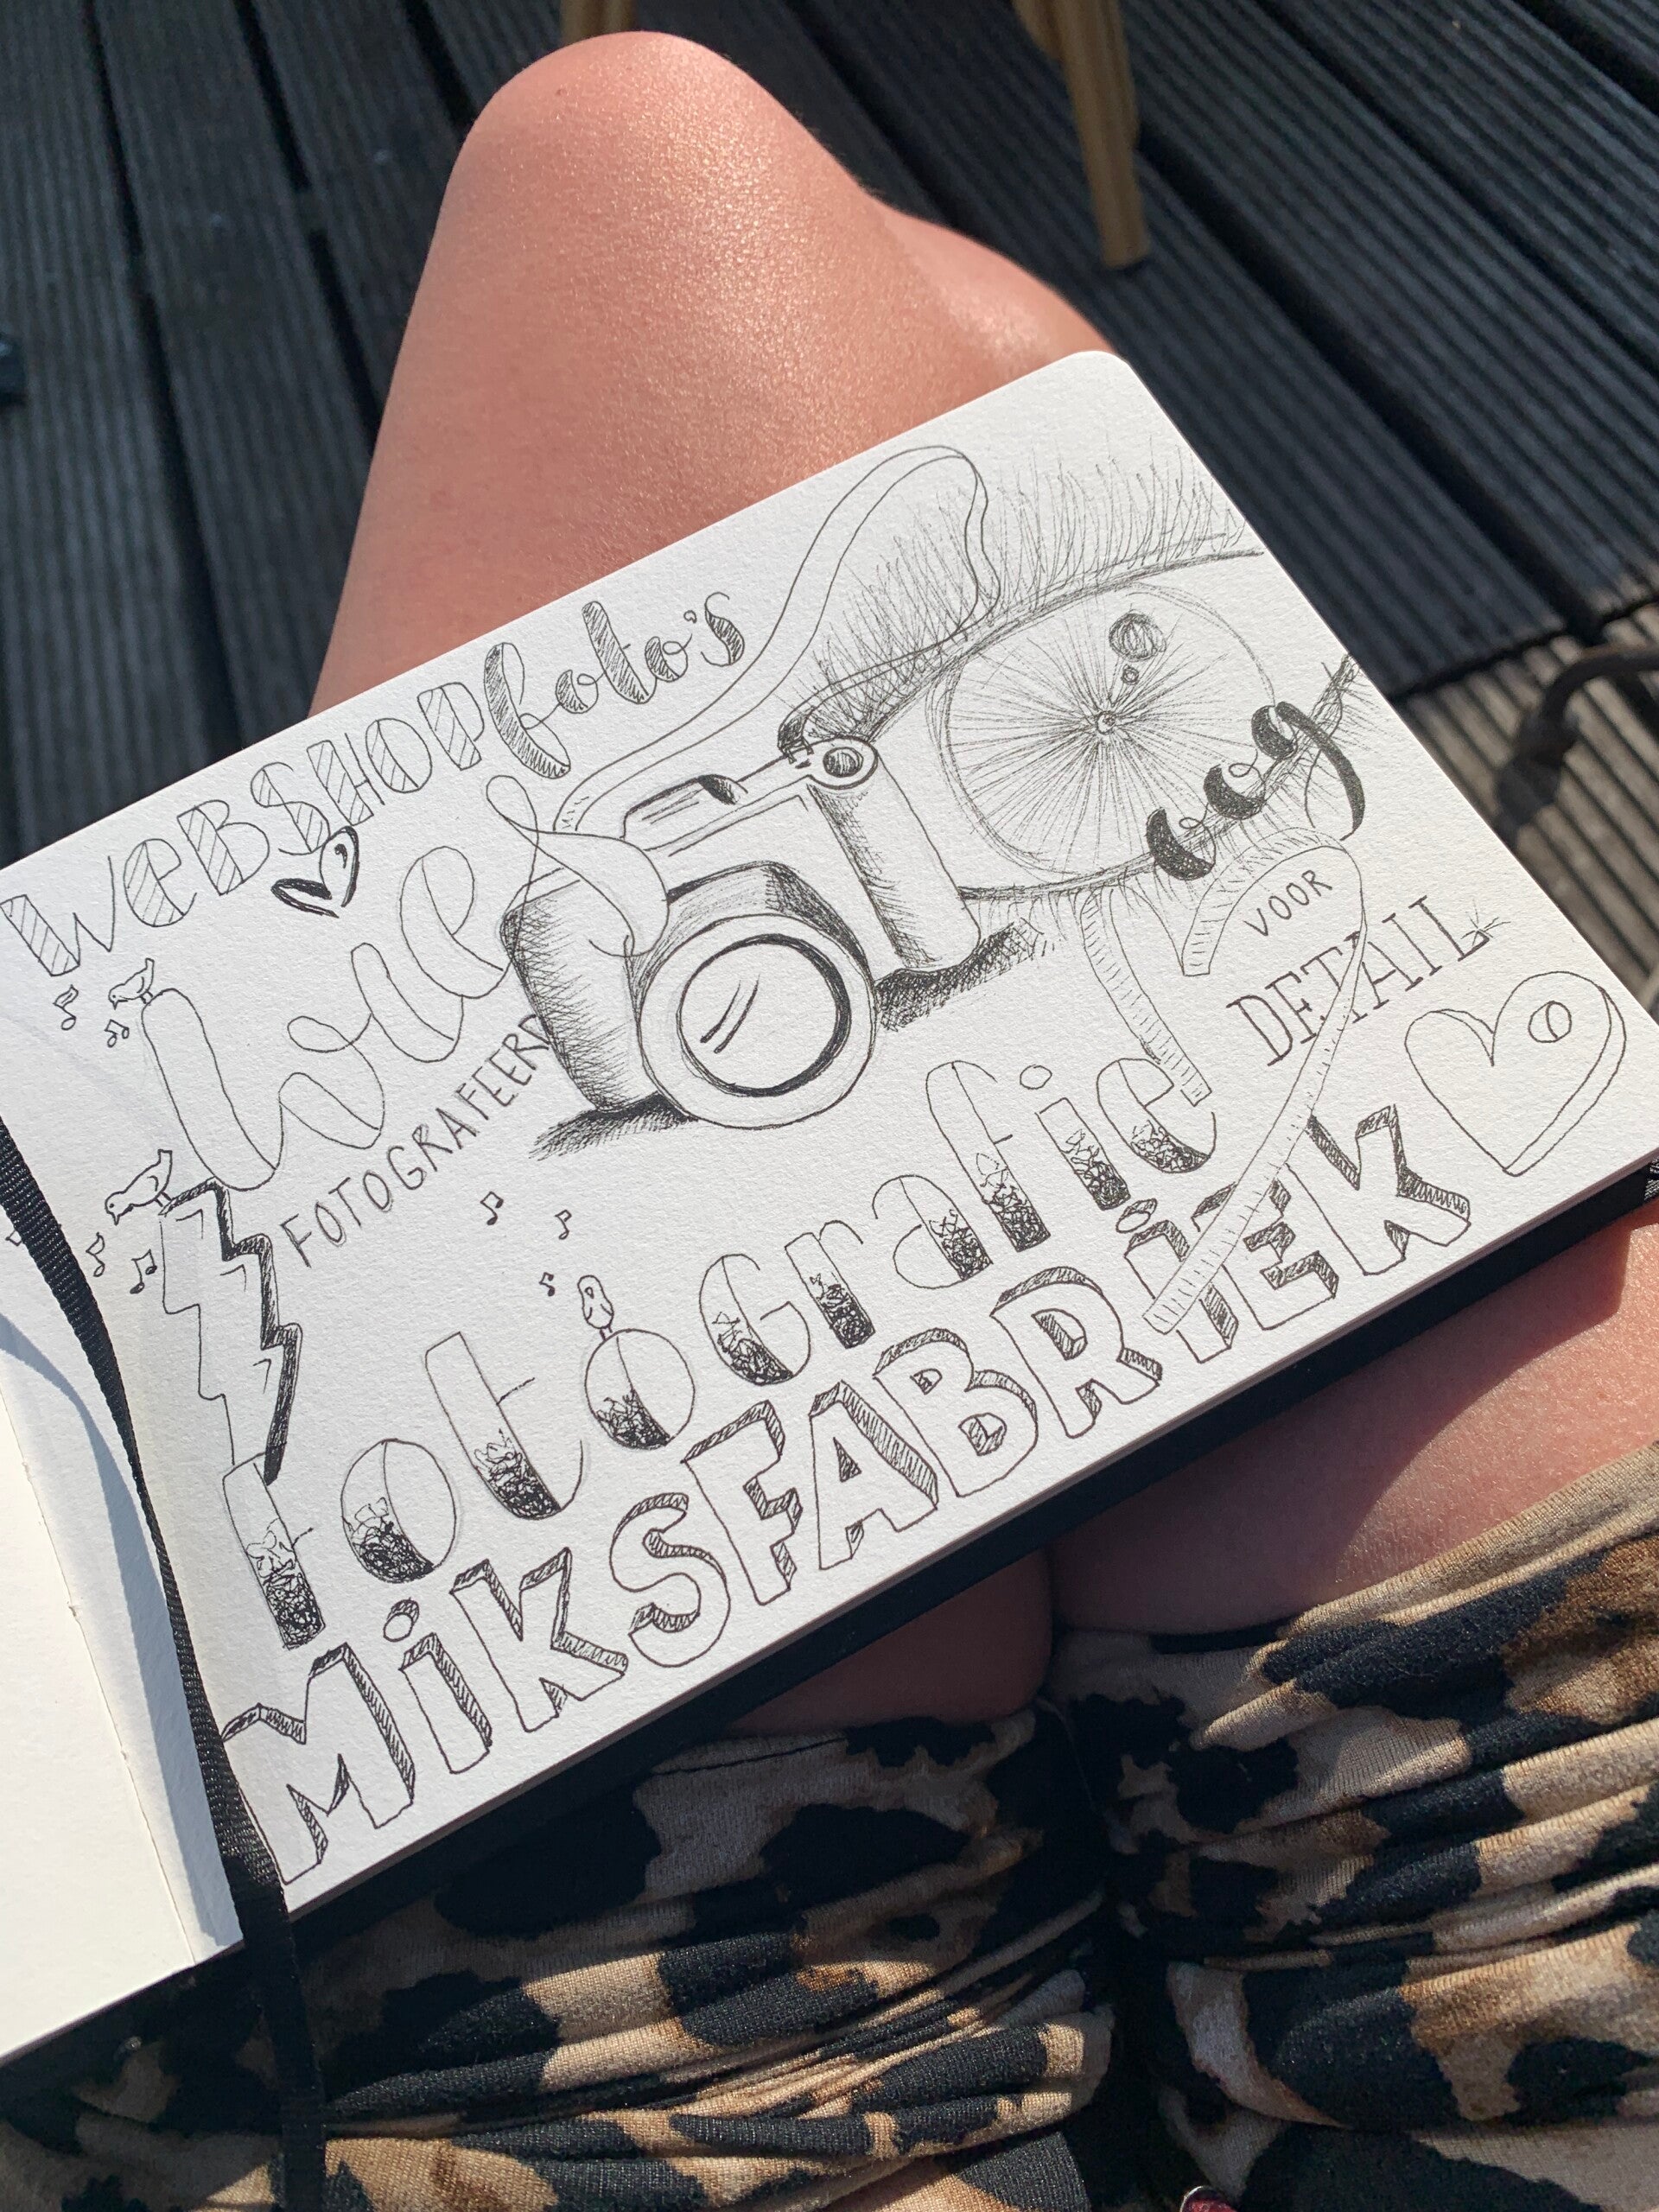 WEBSHOPfoto's
FOTOGRAFEERD
oog
VOOR
DETAIL
Fotografie
MiKSFABRiEK